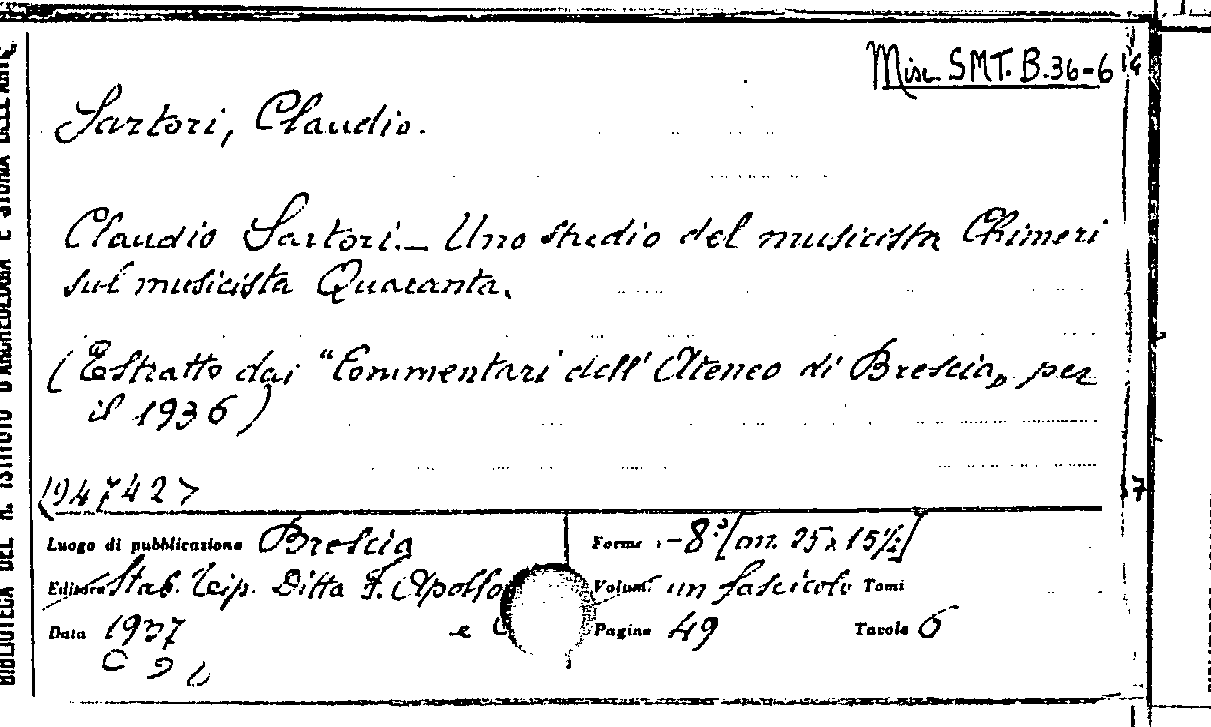 Misc. SMT. B.36-6 14
Sartori, Claudio.
Claudio Sartori. — Uno studio del musicista Chimeri
sul musicista Quaranta.
(Estratto dai "Commentari dell'Ateneo di Brescia„ per
il 1936)
(947427
Luogo di pubblicazione Brescia
Forma :-8°[cm. 25x15½]
Editore Stab. Tip. Ditta F. Apollo
Volumi un fascicolo Tomi
Data 1937 e
Pagine 49 Tavole 6
BIBLIOTECA DEL R. ISTITUTO D'ARCHEOLOGIA E STORIA DELL'ARTE